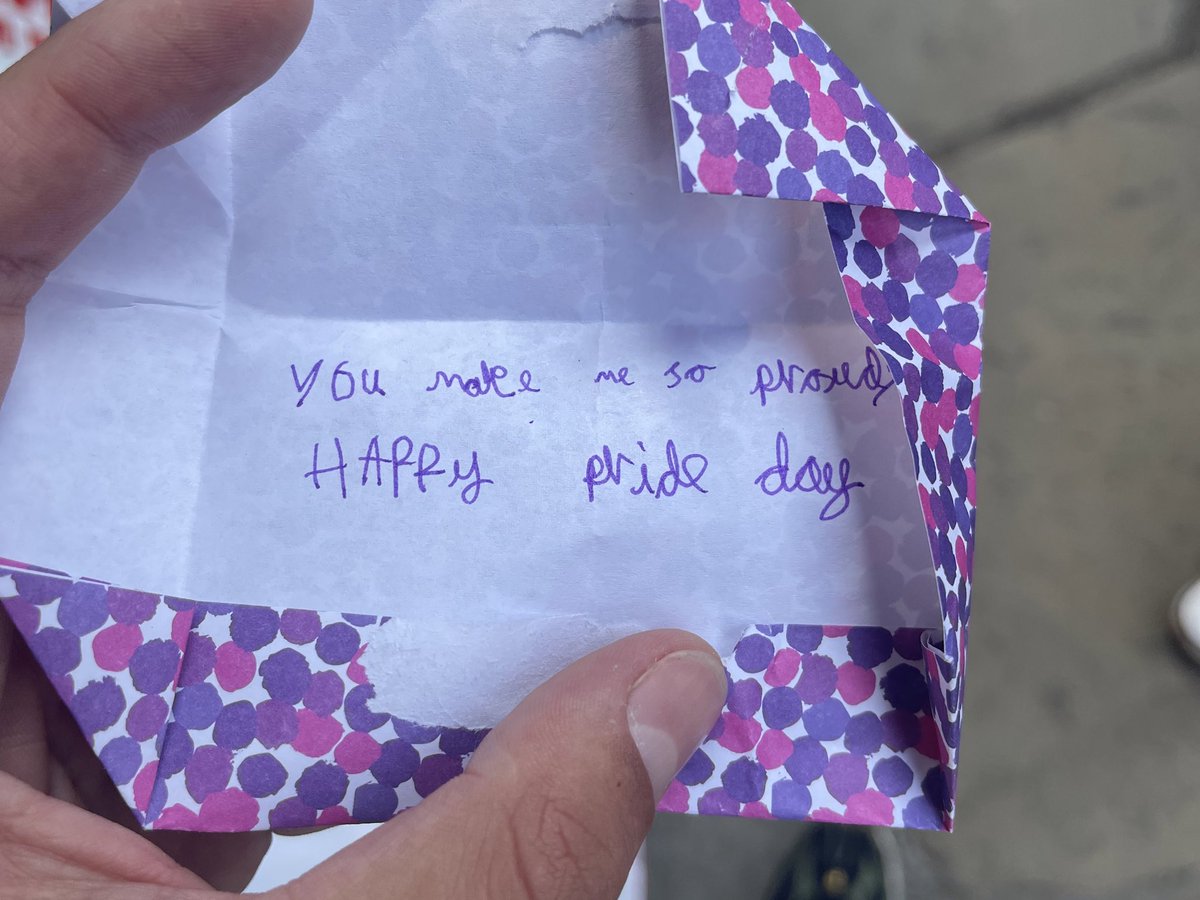 YOU make me so proud
HAPPy pride day